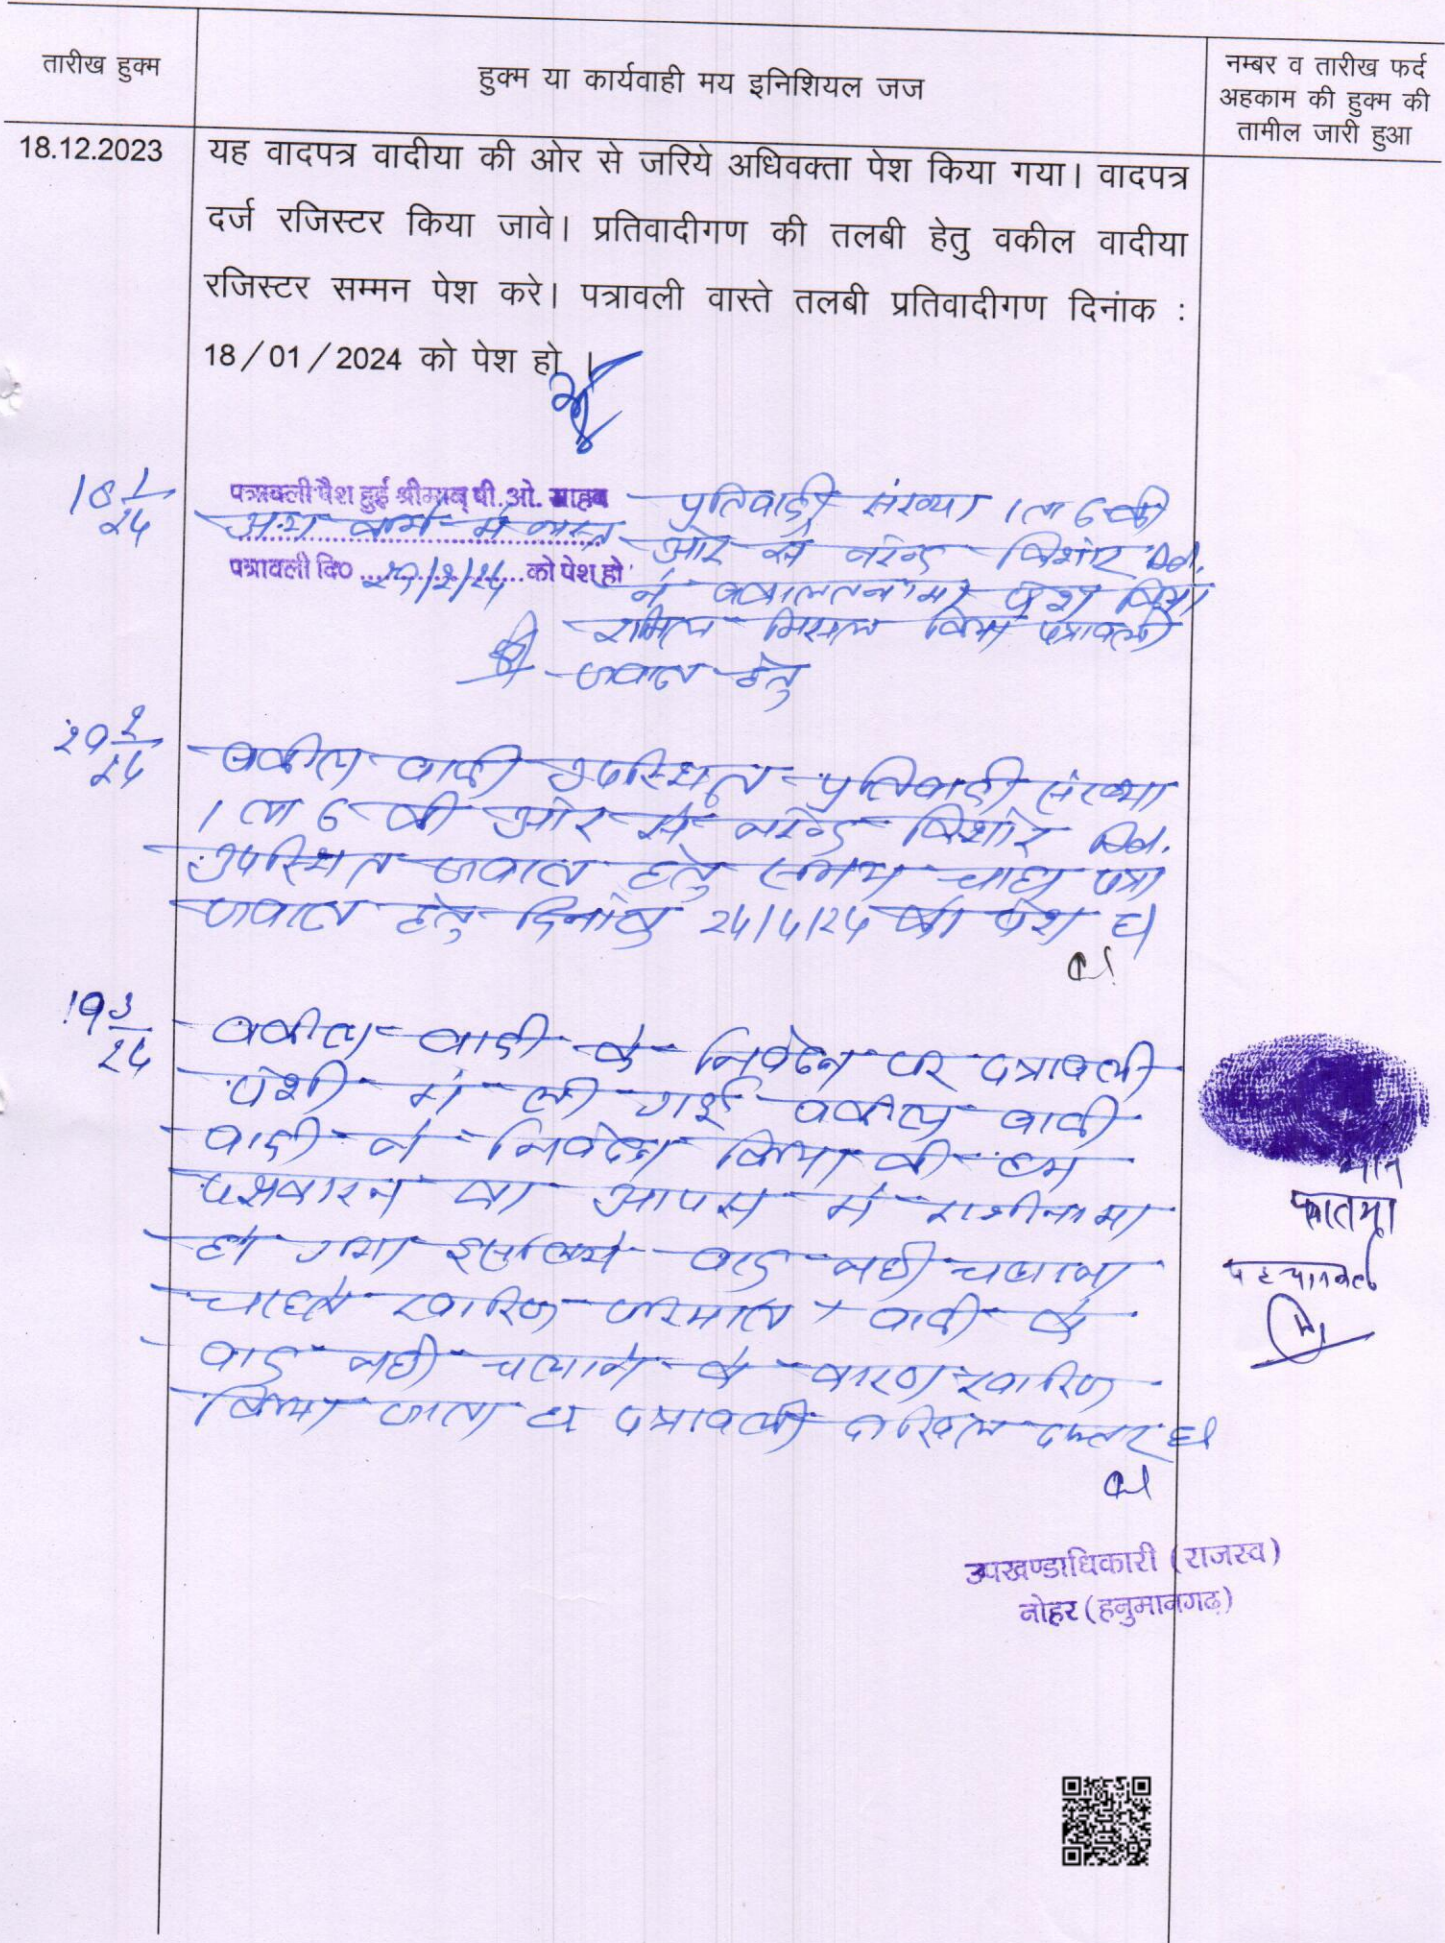 तारीख हुक्म
हुक्म या कार्यवाही मय इनिशियल जज
नम्बर व तारीख फर्द
अहकाम की हुक्म की
तामील जारी हुआ
18.12.2023
यह वादपत्र वादीया की ओर से जरिये अधिवक्ता पेश किया गया। वादपत्र
दर्ज रजिस्टर किया जावे। प्रतिवादीगण की तलबी हेतु वकील वादीया
रजिस्टर सम्मन पेश करे। पत्रावली वास्ते तलबी प्रतिवादीगण दिनांक :
18/01/2024 को पेश हो ।
18 1/24
पत्रावली पेश हुई श्रीमान् पी.ओ. साहब
अन्य कार्य में व्यस्त
पत्रावली दि० 29/2/24 को पेश हो
प्रतिवादी संख्या 1 ता 6 की
ओर से नरेन्द्र किशोर Adv.
ने वकालतनामा पेश किया
शामिल मिसल किया पत्रावली
जवाब हेतु
29 2/24
वकील वादी उपस्थित प्रतिवादी संख्या
1 ता 6 की ओर से नरेन्द्र किशोर Adv.
उपस्थित जवाब हेतु समय चाहा पत्रा
जवाब हेतु दिनांक 24/4/24 को पेश हो
19 3/24
वकील वादी के निवेदन पर पत्रावली
पेशी में ली गई वकील वादी
वादी ने निवेदन किया की हम
पक्षकारन का आपस में राजीनामा
हो गया इसलिये वाद नही चलाना
चाहते खारिज फरमावे । वादी के
वाद नही चलाने के कारण खारिज
किया जाता है पत्रावली दाखिल दफ्तर हो
फातमा
पहचानकर्ता
उपखण्डाधिकारी (राजस्व)
नोहर (हनुमानगढ़)